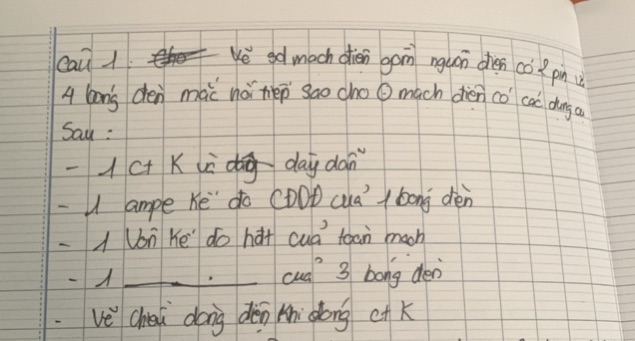 Câu 1. Vẽ sđ mạch điện gồm nguồn điện có 2 pin và
4 bóng đèn mắc nối tiếp sao cho mạch điện có các dụng cụ
Sau :
- 1 ct K và dây dẫn
- 1 ampe kế đo CĐDĐ của 1 bóng đèn
- 1 Vôn kế đo hđt của toàn mạch
- 1 ________ . ________ của 3 bóng đèn
- Vẽ chiều dòng điện khi đóng ct K